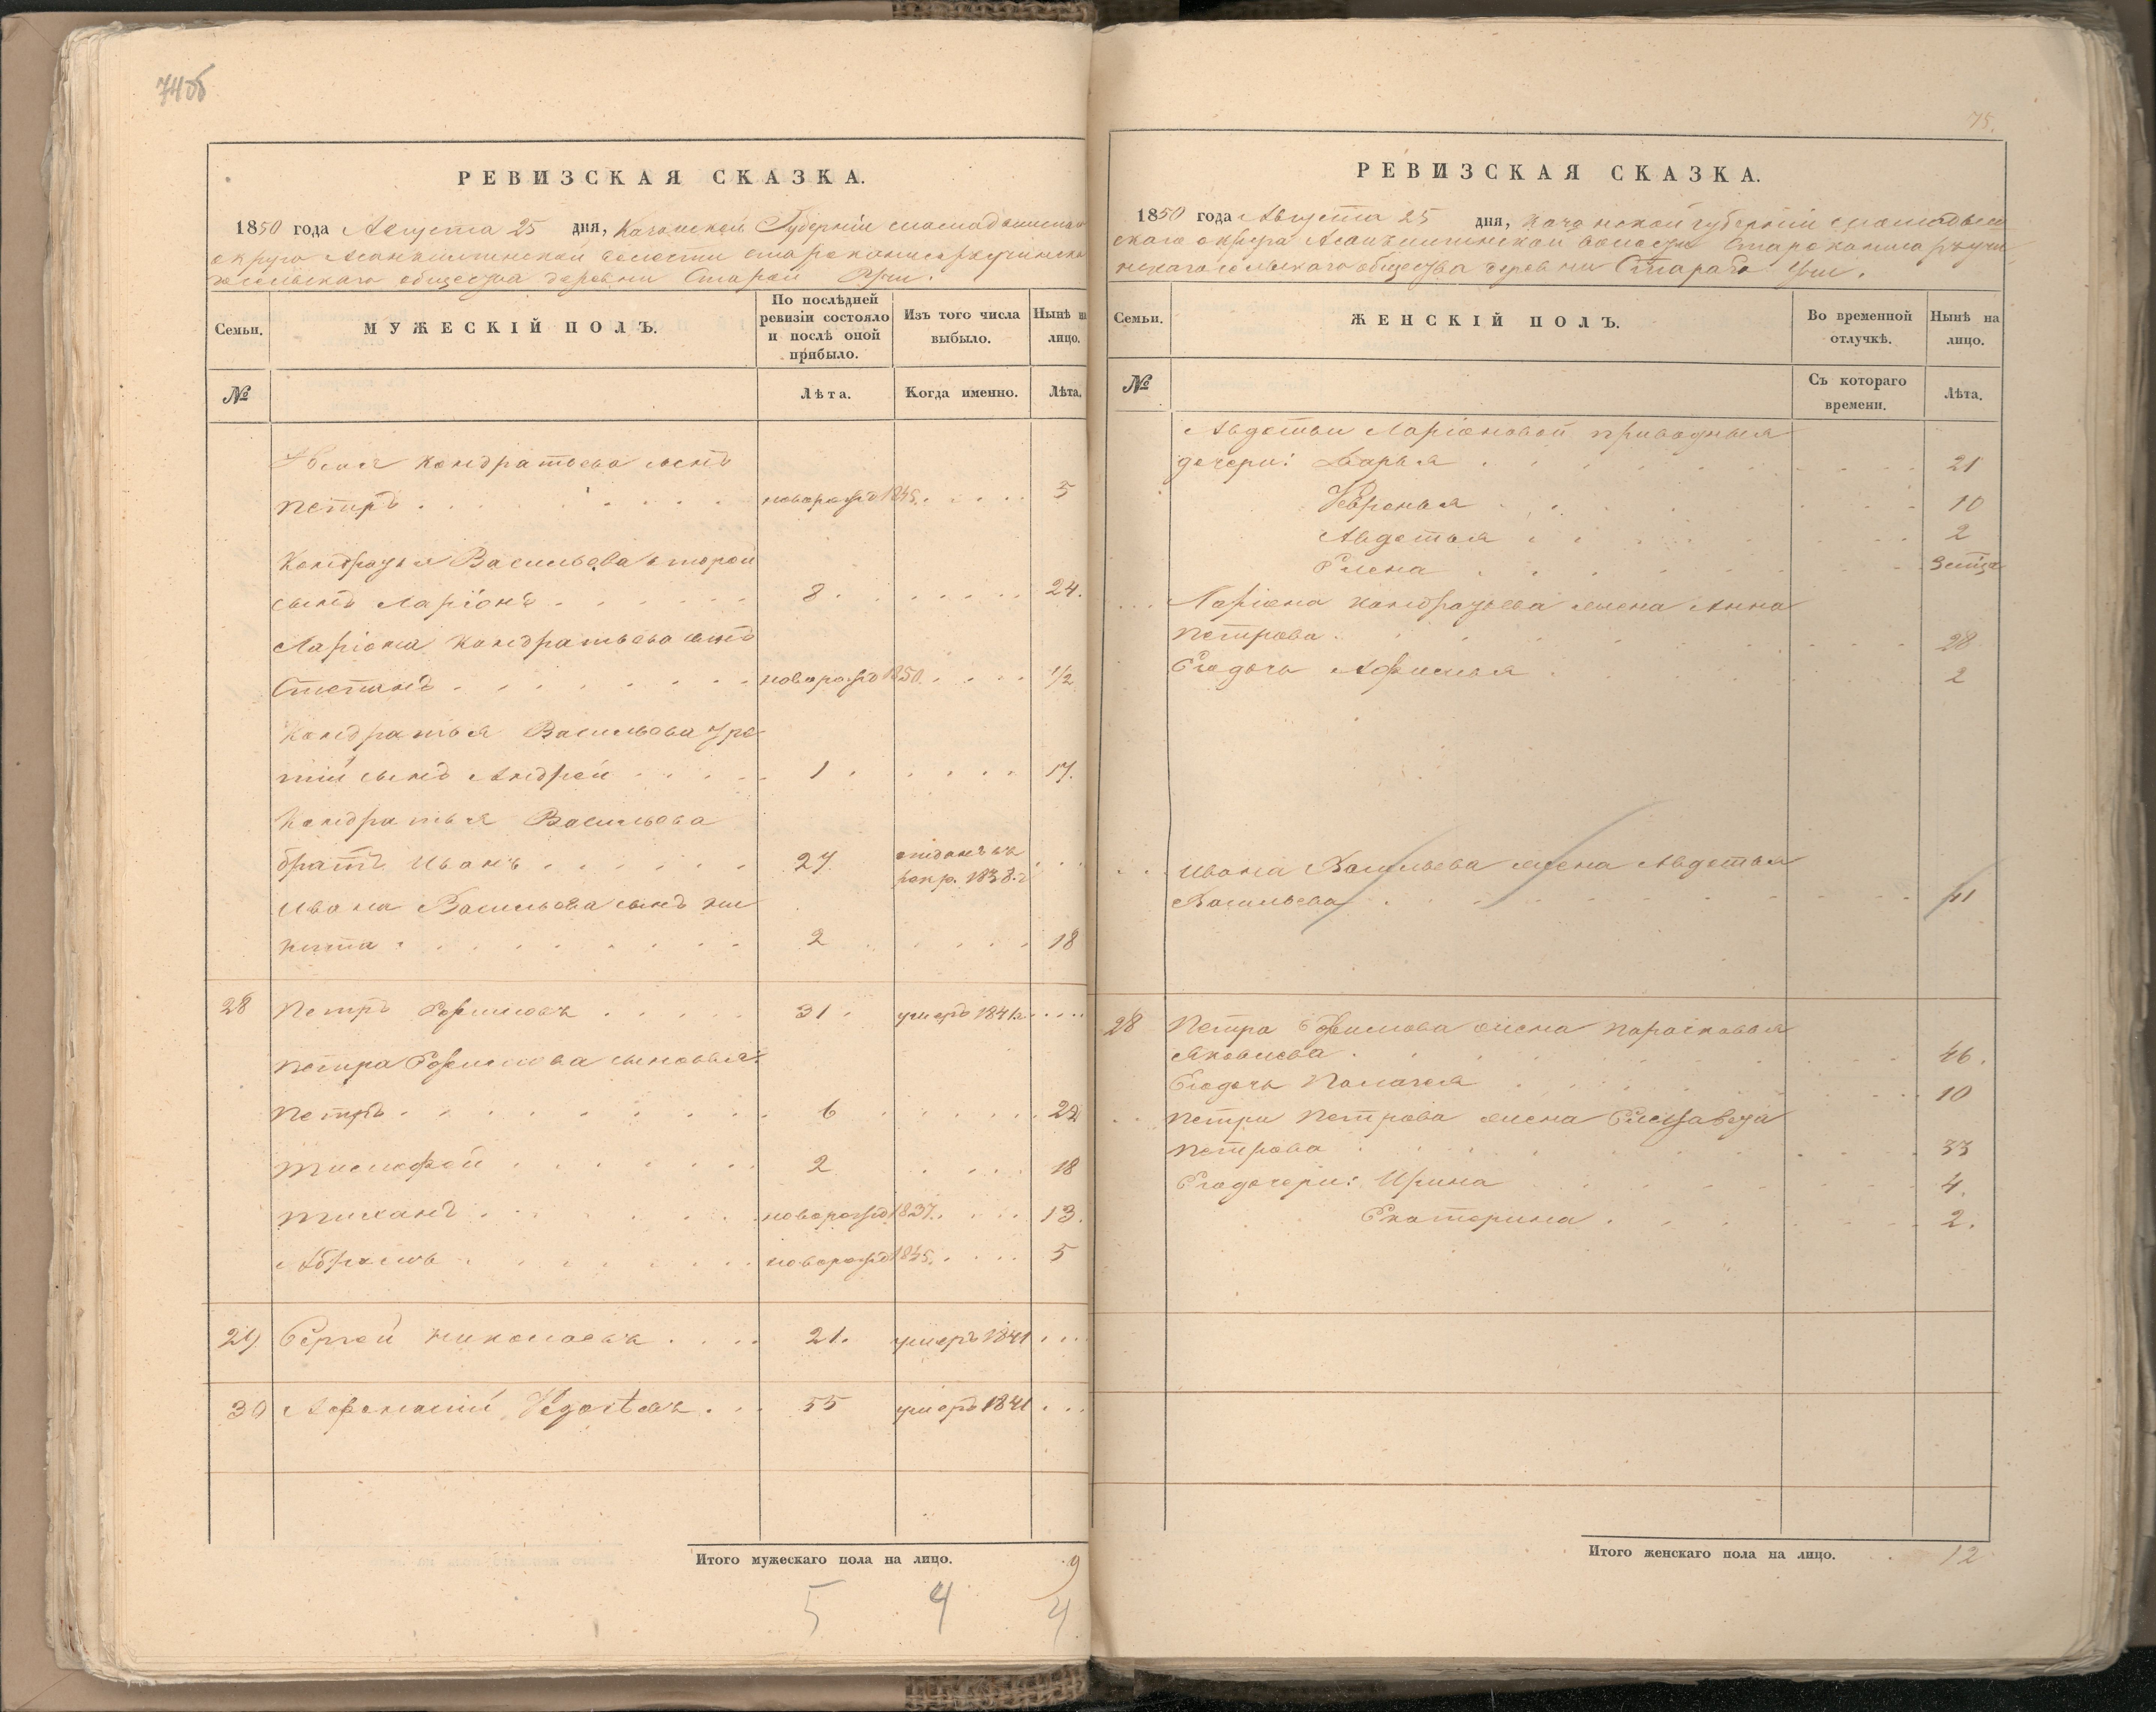 74об
РЕВИЗСКАЯ СКАЗКА.
1850 года Августа 25 дня, Казанской Губерніи
округа волости
сельскаго общества деревни Старой Учи.
Семьи.
МУЖЕСКІЙ ПОЛЪ.
По послѣдней ревизіи состояло и послѣ оной прибыло.
Изъ того числа выбыло.
Нынѣ на лицо.
№
Лѣта.
Когда именно.
Лѣта.
Кондратьева сынъ
Петръ новорожд 1845. 5
Кондратья Васильева второй
сынъ Ларіонъ 8 24.
Ларіона Кондратьева сынъ
Степанъ новорожд 1850. 1/2
Кондратья Васильева тре
тій сынъ Андрей 1 17.
Кондратья Васильева
братъ Иванъ 27 отданъ въ рекр. 1838.г
Ивана Васильева сынъ Ни
кита 2 18
28 Петръ Ефимовъ 31 умеръ 1841г
Петра Ефимова сыновья:
Петръ 6 22
Тимофей 2 18
Тихонъ новорожд 1837. 13.
Абрамъ новорожд 1845. 5
29 Сергей Николаевъ 21. умеръ 1841
30 Афонасій 55 умеръ 1841
Итого мужескаго пола на лицо. 9
5 4 4
75.
РЕВИЗСКАЯ СКАЗКА.
1850 года Августа 25 дня, Казанской губерніи
скаго округа волости
сельскаго общества деревни Старой Учи.
Семьи.
ЖЕНСКІЙ ПОЛЪ.
Во временной отлучкѣ.
Нынѣ на лицо.
№
Съ котораго времени.
Лѣта.
Авдотьи Ларіоновой приводныя
дочери: Дарья 21
Февронья 10
Авдотья 2
Елена
Ларіона Кондратьева жена Анна
Петрова 28
Егодочь Афимья 2
Ивана Васильева жена Авдотья
Васильева 41
28 Петра Ефимова жена Парасковья
Яковлева 46.
Егодочь Палагея 10
Петра Петрова жена Елизавета
Петрова 33
Егодочери: Ирина 4.
Екатерина 2.
Итого женскаго пола на лицо. 12